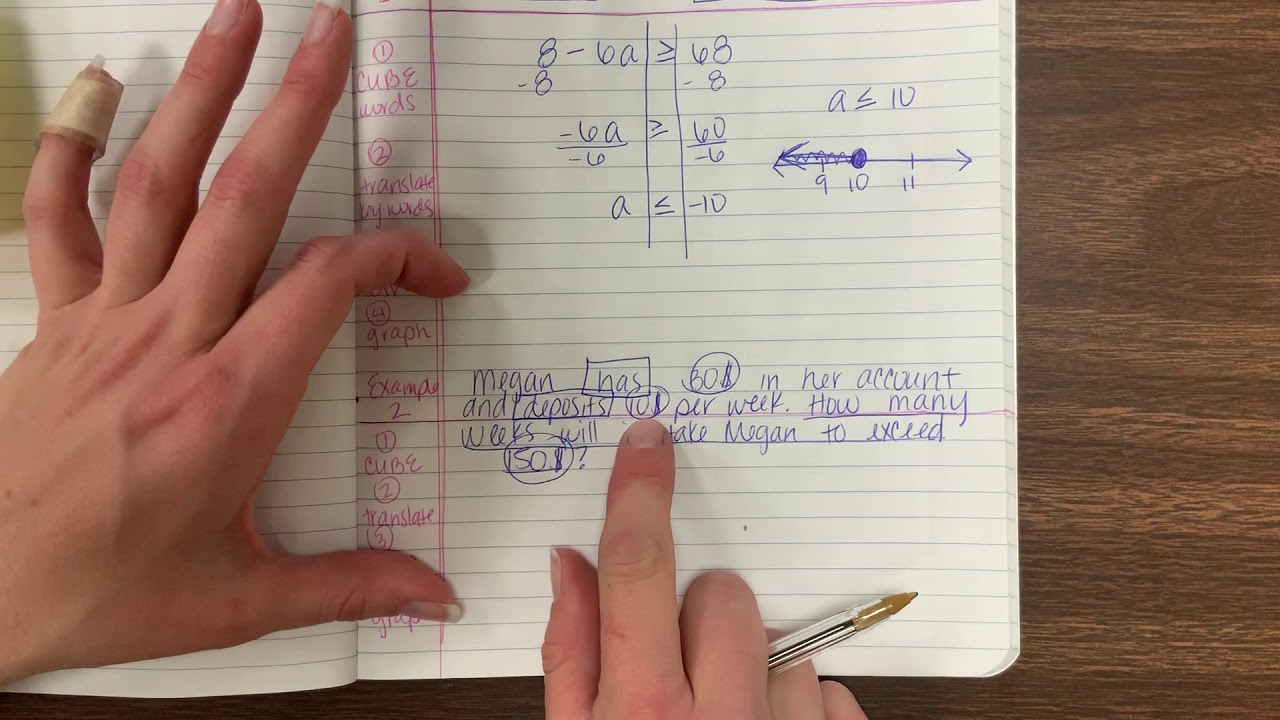 ①
CUBE
words
②
translate
key words
④
graph
8 - 6a ≥ 68
-8 - 8
-6a ≥ 60
-6 -6
a ≤ -10
a ≤ 10
9 10 11
Example
2
Megan has 30$ in her account
and deposits 10$ per week. How many
weeks will take Megan to exceed
150$?
①
CUBE
②
translate
③
graph